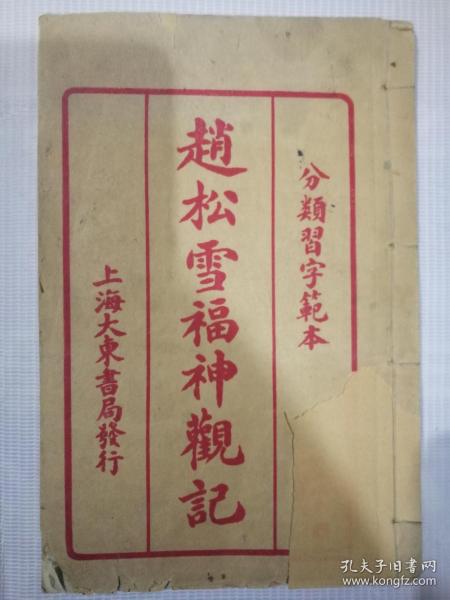 分類習字範本
趙松雪福神觀記
上海大東書局發行
孔夫子旧书网
www.kongfz.com